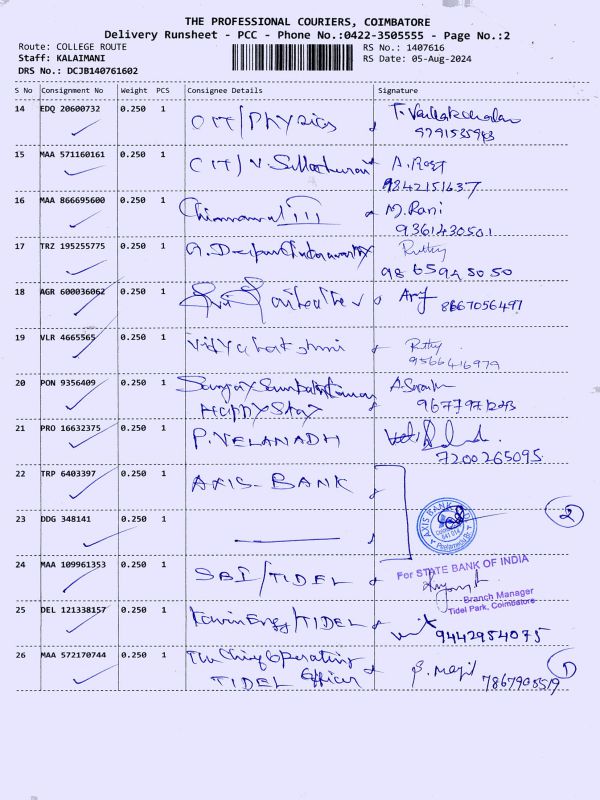 THE PROFESSIONAL COURIERS, COIMBATORE
Delivery Runsheet - PCC - Phone No.:0422-3505555 - Page No.:2
Route: COLLEGE ROUTE RS No.: 1407616
Staff: KALAIMANI RS Date: 05-Aug-2024
DRS No.: DCJB140761602
S No Consignment No Weight PCS Consignee Details Signature
14 EDQ 20600732 0.250 1 CIT/Physics
9791535943
15 MAA 571160161 0.250 1 CIT/V. A. Roja
9842151637
16 MAA 866695600 0.250 1 M. Rani
9361430501
17 TRZ 195255775 0.250 1 Ruthy
98 65945050
18 AGR 600036062 0.250 1 8667056497
19 VLR 4665565 0.250 1 Vidyalakshmi Ruthy
9566416979
20 PON 9356409 0.250 1 Sanjay
Happy Stay
21 PRO 16632375 0.250 1 P. VELANADH
7200265095
22 TRP 6403397 0.250 1 AXIS-BANK
AXIS BANK
2
23 DDG 348141 0.250 1
24 MAA 109961353 0.250 1 SBI/TIDEL
For STATE BANK OF INDIA
Branch Manager
Tidel Park, Coimbatore
25 DEL 121338157 0.250 1 Engg/TIDEL 9442954075
26 MAA 572170744 0.250 1 The Chief Operating 1
TIDEL Officer 7867905519